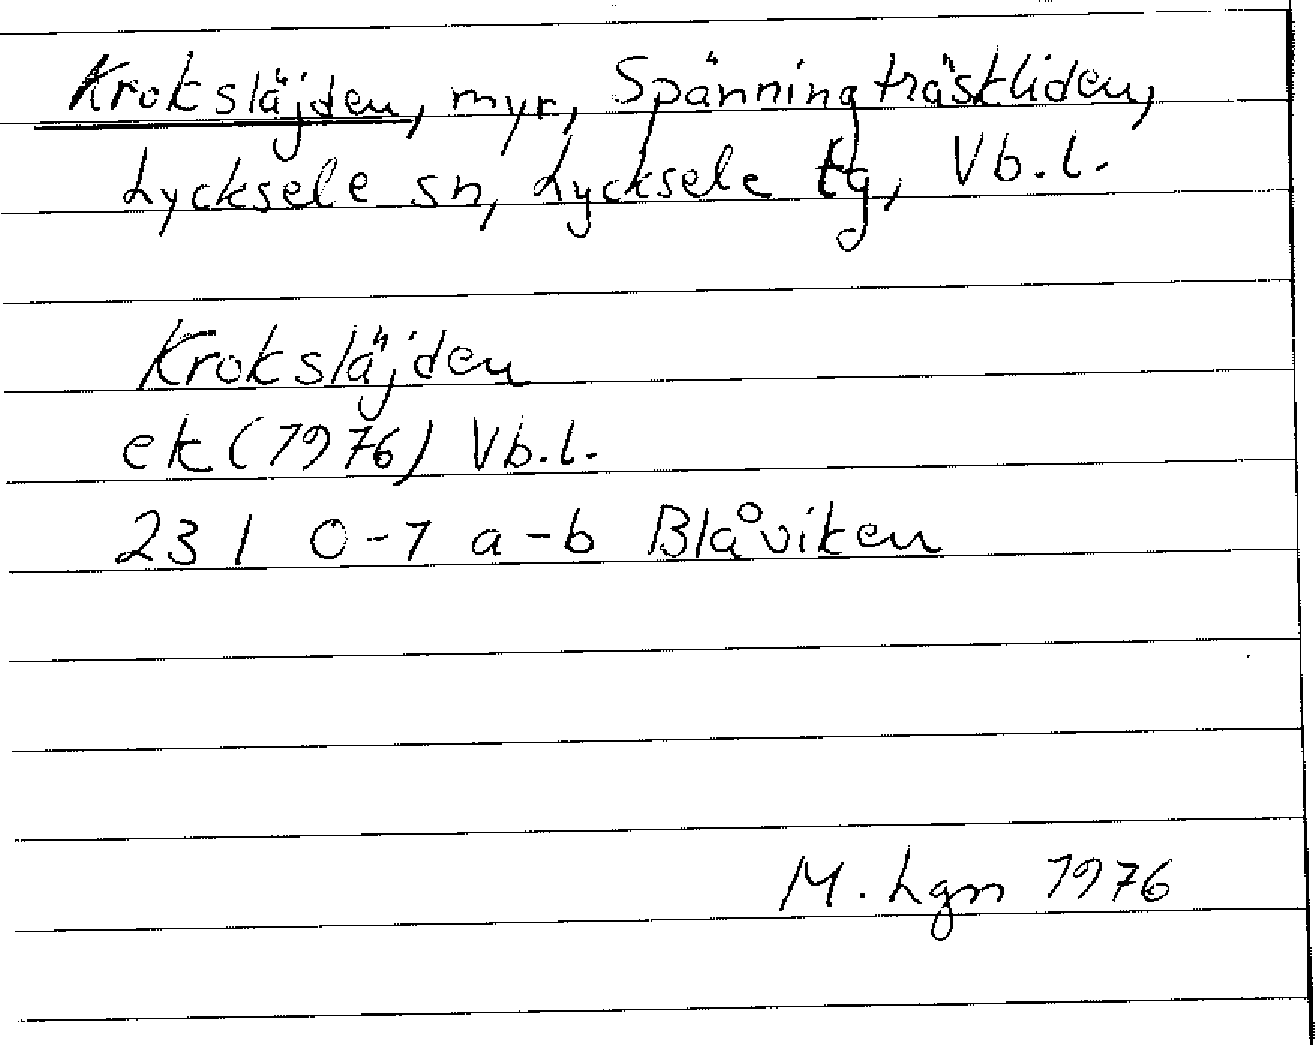 Kroksläjden, myr, Spänningträskliden,
Lycksele sn, Lycksele tg, Vb.l.
Kroksläjden
ek (1976) Vb.l.
23 I 0-1 a-b Blåviken
M. Lgm 1976